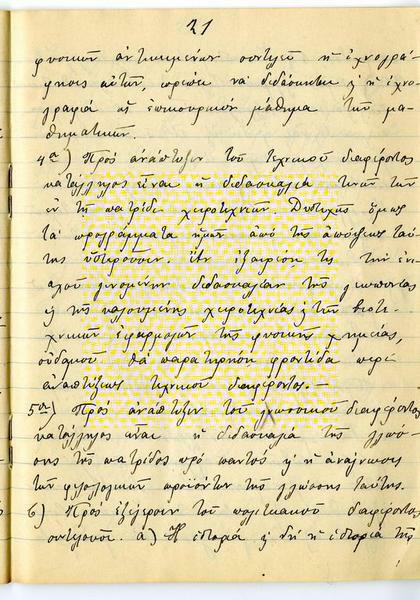 21
φυσικῶν ἀντικειμένων συντελεῖ ἡ ἰχνογρά-
φησις αὐτῶν, πρέπει νὰ διδάσκηται ἡ ἰχνο-
γραφία ὡς ἐπικουρικὸν μάθημα τῶν μα-
θηματικῶν.
4ον) Πρὸς ἀνάπτυξιν τοῦ τεχνικοῦ διαφέροντος
κατάλληλος εἶναι ἡ διδασκαλία τῶν
ἐν τῇ πατρίδι χειροτεχνιῶν. Δυστυχῶς ὅμως
τὰ προγράμματα ἡμῶν ἀπὸ τῆς ἀπόψεως ταύ-
της ὑστεροῦσιν. ἐν ἐξαιρέσῃ τις τὴν
γινομένην διδασκαλίαν τῆς γεωπονίας
ἢ τῆς καλουμένης χειροτεχνίας ἢ τῶν βιοτε-
χνικῶν ἐφαρμογῶν τῆς φυσικῆς χημείας,
οὐδαμοῦ θὰ παρατηρήσῃ φροντίδα περὶ
ἀναπτύξεως τεχνικοῦ διαφέροντος.—
5ον) Πρὸς ἀνάπτυξιν τοῦ γλωσσικοῦ διαφέροντος
κατάλληλος εἶναι ἡ διδασκαλία τῆς γλώσ-
σης τῆς πατρίδος πρὸ παντὸς ἡ ἀνάγνωσις
τῶν φιλολογικῶν προϊόντων τῆς γλώσσης ταύτης.
6) Πρὸς ἐξέγερσιν τοῦ πολιτικοῦ διαφέροντος
συντελοῦσι. α) Ἡ ἱστορία ἡ ἱστορία τῆς